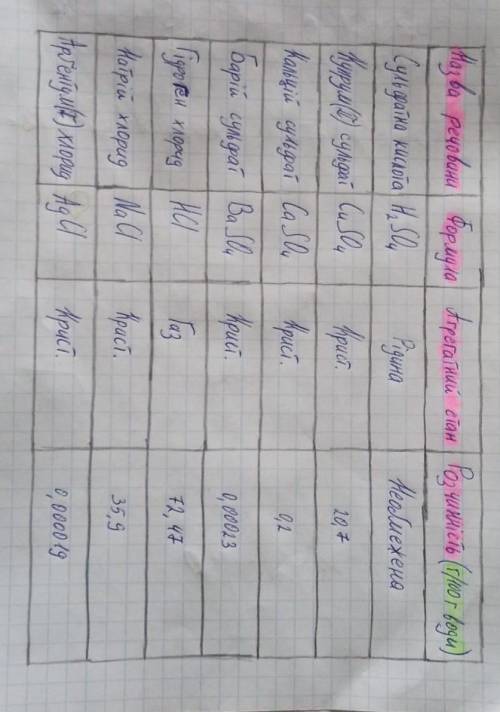 Назва речовини Формула Агрегатний стан Розчинність (г/100 г води)
Сульфатна кислота H₂SO₄ Рідина Необмежена
Купрум(II) сульфат CuSO₄ Крист. 20,7
Кальцій сульфат CaSO₄ Крист. 0,2
Барій сульфат BaSO₄ Крист. 0,00023
Гідроген хлорид HCl Газ 72,47
Натрій хлорид NaCl Крист. 35,9
Аргентум(I) хлорид AgCl Крист. 0,00019